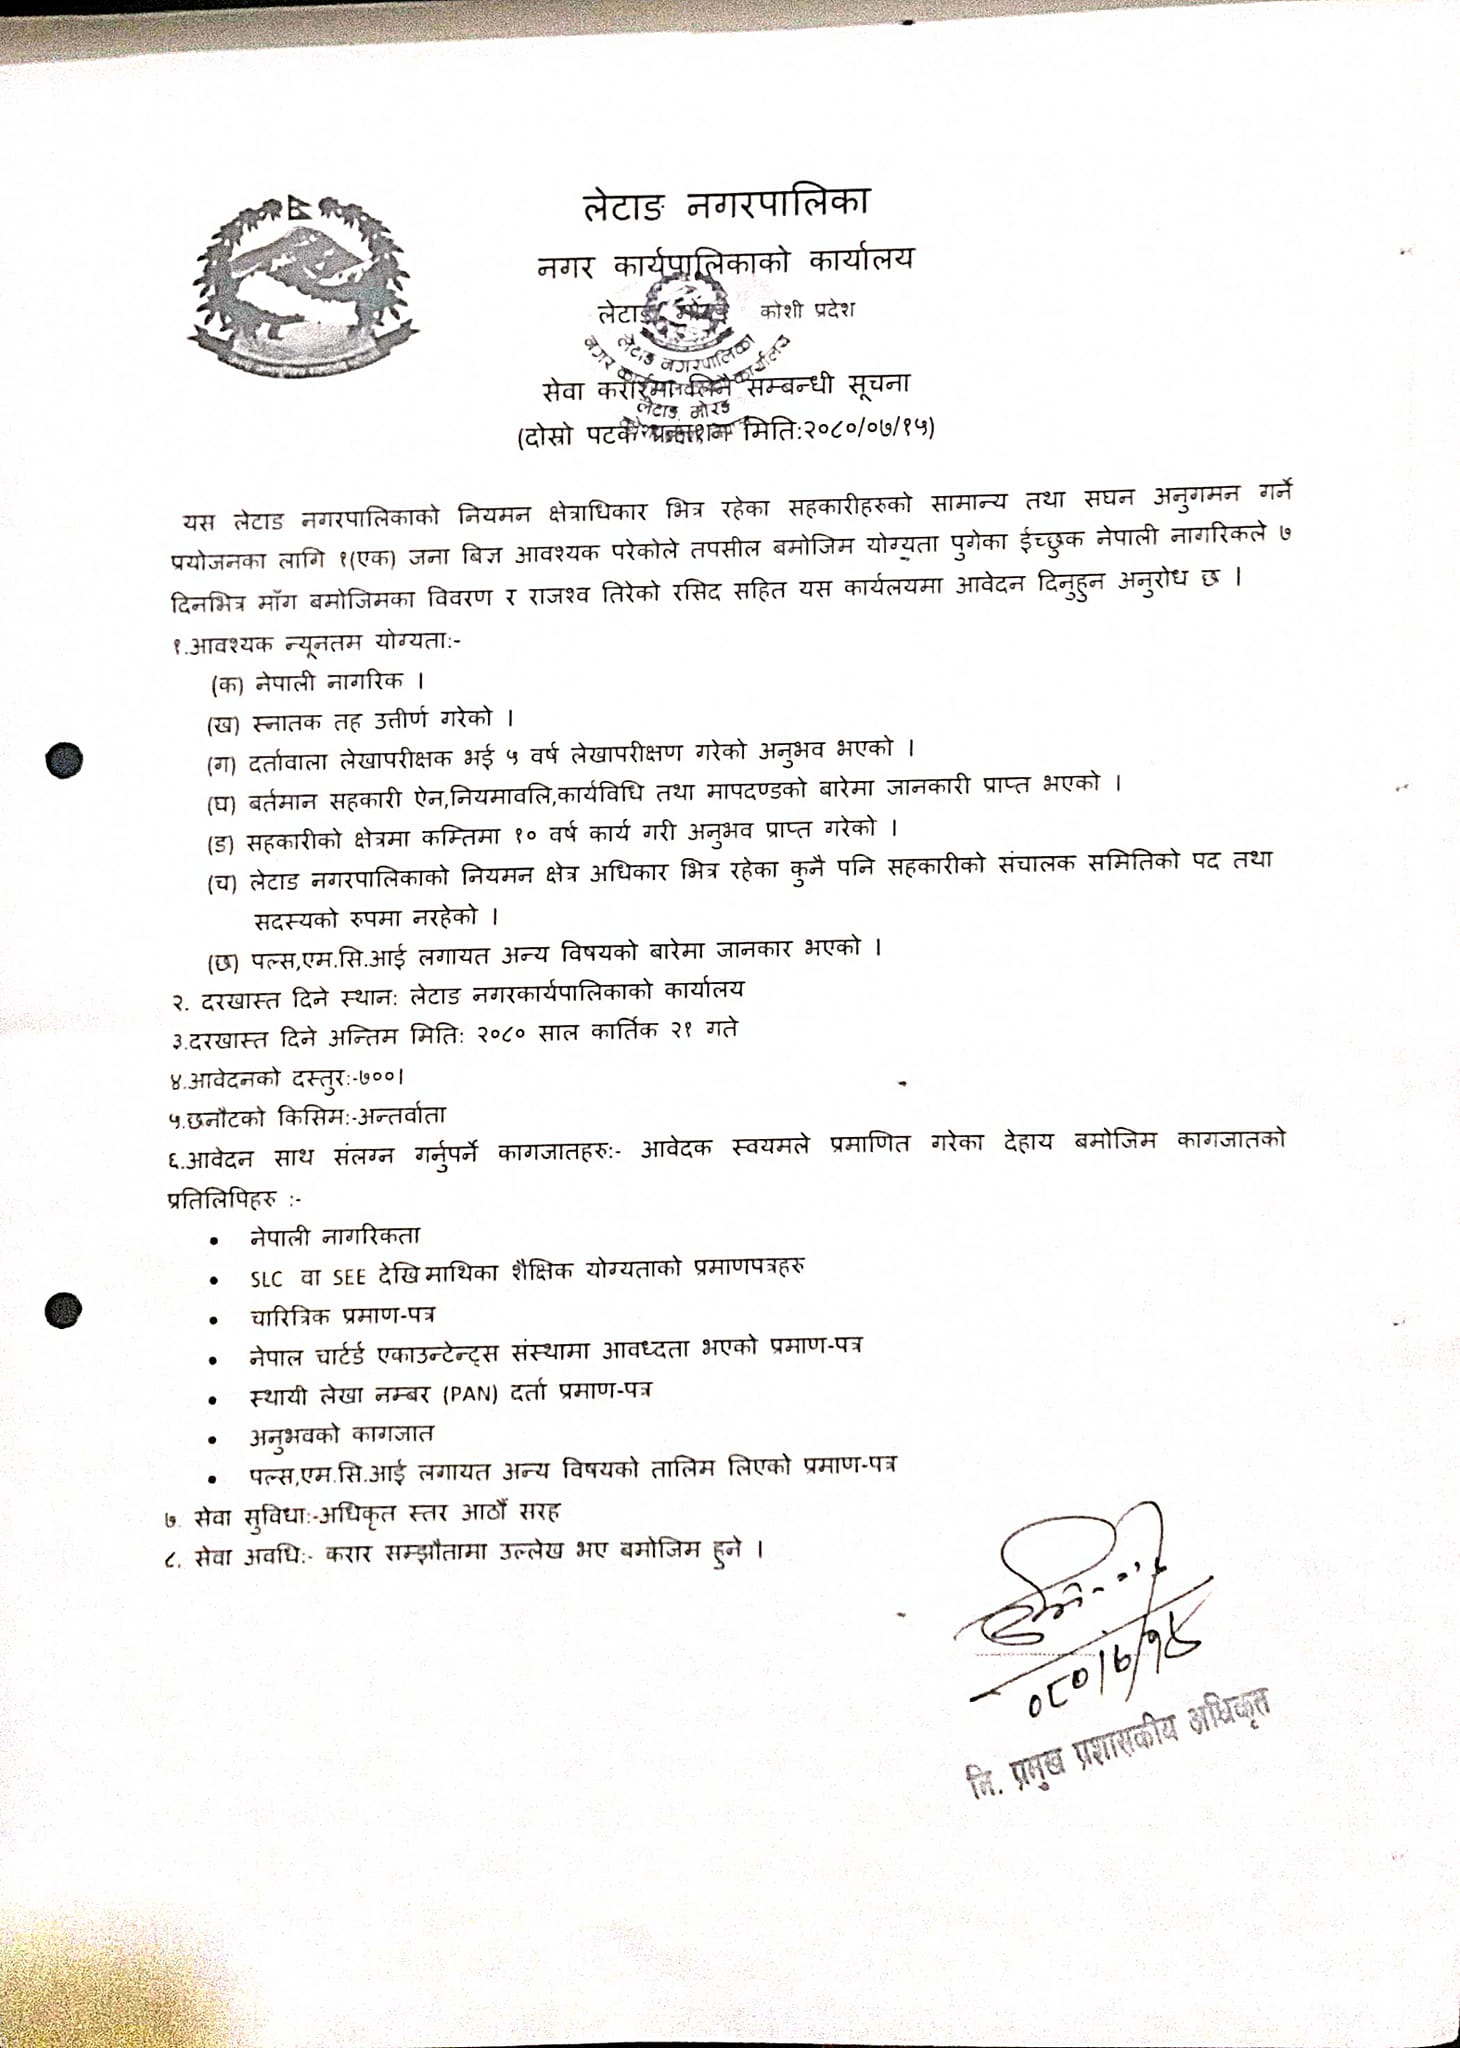 लेटाङ नगरपालिका
नगर कार्यपालिकाको कार्यालय
लेटाङ, मोरङ कोशी प्रदेश
लेटाङ नगरपालिका
नगर कार्यपालिकाको कार्यालय
लेटाङ, मोरङ
सेवा करारमा लिने सम्बन्धी सूचना
(दोस्रो पटक प्रकाशन मिति:२०८०/०७/१५)
यस लेटाङ नगरपालिकाको नियमन क्षेत्राधिकार भित्र रहेका सहकारीहरुको सामान्य तथा सघन अनुगमन गर्ने
प्रयोजनका लागि १(एक) जना बिज्ञ आवश्यक परेकोले तपसील बमोजिम योग्यता पुगेका ईच्छुक नेपाली नागरिकले ७
दिनभित्र माँग बमोजिमका विवरण र राजश्व तिरेको रसिद सहित यस कार्यलयमा आवेदन दिनुहुन अनुरोध छ ।
१.आवश्यक न्यूनतम योग्यता:-
(क) नेपाली नागरिक ।
(ख) स्नातक तह उत्तीर्ण गरेको ।
(ग) दर्तावाला लेखापरीक्षक भई ५ वर्ष लेखापरीक्षण गरेको अनुभव भएको ।
(घ) बर्तमान सहकारी ऐन,नियमावलि,कार्यविधि तथा मापदण्डको बारेमा जानकारी प्राप्त भएको ।
(ङ) सहकारीको क्षेत्रमा कम्तिमा १० वर्ष कार्य गरी अनुभव प्राप्त गरेको ।
(च) लेटाङ नगरपालिकाको नियमन क्षेत्र अधिकार भित्र रहेका कुनै पनि सहकारीको संचालक समितिको पद तथा
सदस्यको रुपमा नरहेको ।
(छ) पल्स,एम.सि.आई लगायत अन्य विषयको बारेमा जानकार भएको ।
२. दरखास्त दिने स्थान: लेटाङ नगरकार्यपालिकाको कार्यालय
३.दरखास्त दिने अन्तिम मिति: २०८० साल कार्तिक २१ गते
४.आवेदनको दस्तुर:-७००।
५.छनौटको किसिम:-अन्तर्वाता
६.आवेदन साथ संलग्न गर्नुपर्ने कागजातहरु:- आवेदक स्वयमले प्रमाणित गरेका देहाय बमोजिम कागजातको
प्रतिलिपिहरु :-
• नेपाली नागरिकता
• SLC वा SEE देखि माथिका शैक्षिक योग्यताको प्रमाणपत्रहरु
• चारित्रिक प्रमाण-पत्र
• नेपाल चार्टर्ड एकाउन्टेन्ट्स संस्थामा आवध्दता भएको प्रमाण-पत्र
• स्थायी लेखा नम्बर (PAN) दर्ता प्रमाण-पत्र
• अनुभवको कागजात
• पल्स,एम.सि.आई लगायत अन्य विषयको तालिम लिएको प्रमाण-पत्र
७. सेवा सुविधा:-अधिकृत स्तर आठौँ सरह
८. सेवा अवधि:- करार सम्झौतामा उल्लेख भए बमोजिम हुने ।
०८०/७/१५
नि. प्रमुख प्रशासकीय अधिकृत